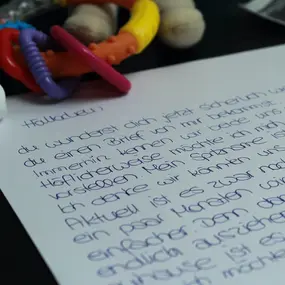 Hallöchen!
du wunderst dich jetzt sicherlich, w
du einen Brief von mir bekommst
Immerhin kennen wir beide uns
Höflicherweise möchte ich mich
vorstellen. Mein Spitzname ist
Ich denke wir könnten uns
Aktuell ist es zwar noch
ein paar Monaten
einfacher. Denn da
endlich ausziehen
zuhause ist es
ich möchte